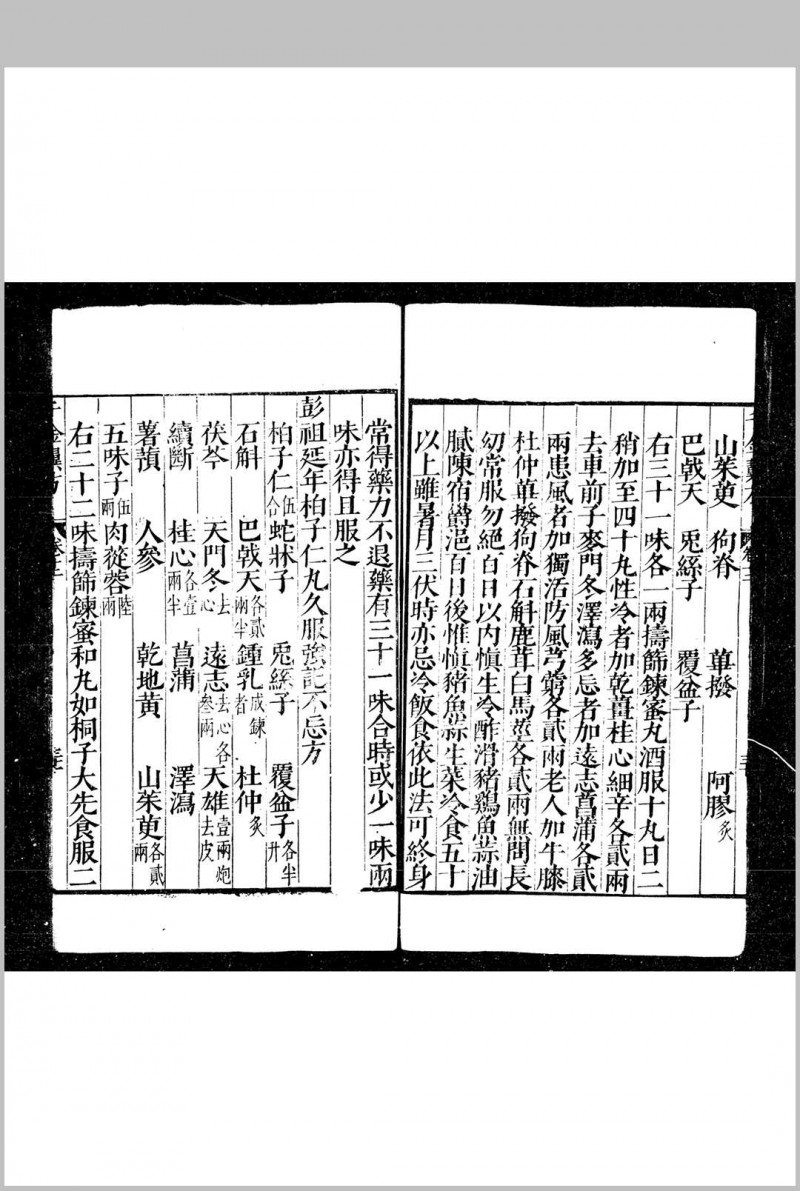 山茱萸　狗脊　蓽撥　阿膠炙
巴戟天　兎絲子　覆盆子
右三十一味各一兩擣篩鍊蜜丸酒服十丸日二
稍加至四十丸性冷者加乾薑桂心細辛各貳兩
去車前子麥門冬澤瀉多忘者加遠志菖蒲各貳
兩患風者加獨活防風芎藭各貳兩老人加牛膝
杜仲蓽撥狗脊石斛鹿茸白馬莖各貳兩無問長
幼常服勿絕百日以內慎生冷酢滑豬鷄魚蒜油
膩陳宿鬱浥百日後惟慎豬魚蒜生菜冷食五十
以上雖暑月三伏時亦忌冷飯食依此法可終身
常得藥力不退藥有三十一味合時或少一味兩
味亦得且服之
彭祖延年柏子仁丸久服強記不忘方
柏子仁伍合　蛇牀子　兎絲子　覆盆子各半升
石斛　巴戟天各貳兩半　鍾乳成鍊者　杜仲炙
茯苓　天門冬去心　遠志去心各叁兩　天雄壹兩炮去皮
續斷　桂心各壹兩半　菖蒲　澤瀉
薯蕷　人參　乾地黄　山茱萸各貳兩
五味子伍兩　肉蓯蓉陸兩
右二十二味擣篩鍊蜜和丸如桐子大先食服二
千金翼方